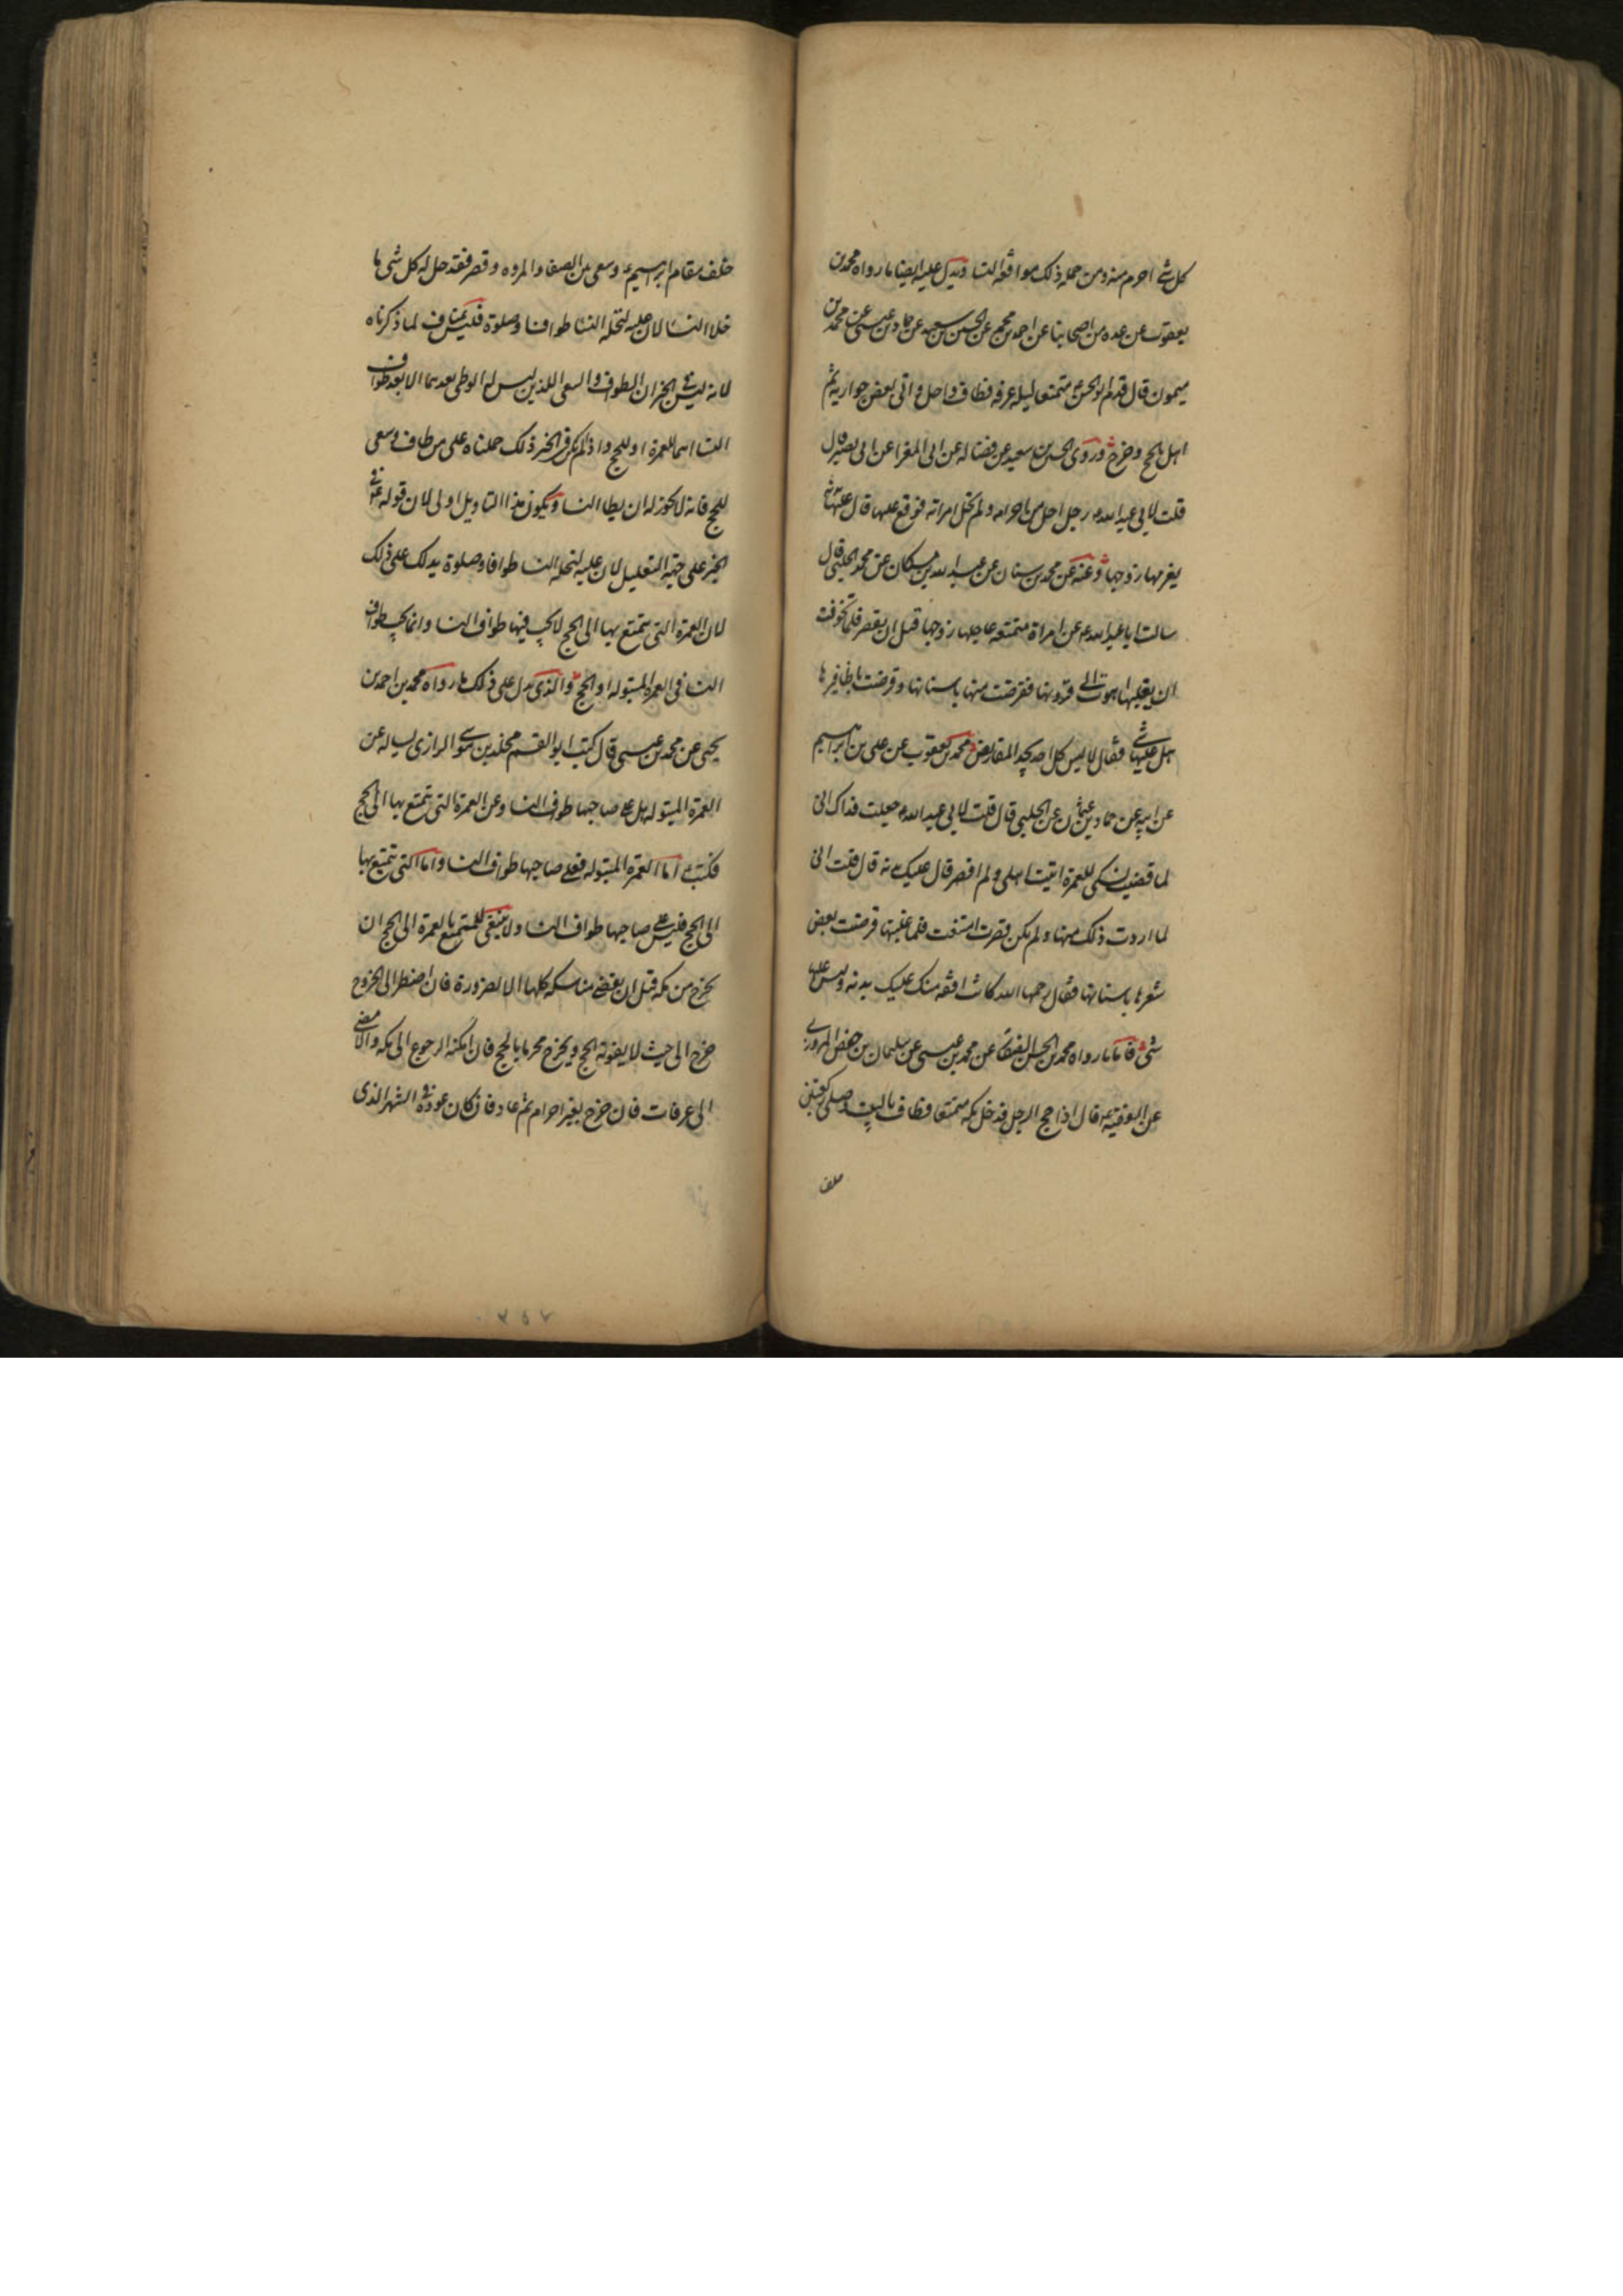 كل شئ احرم منه ومن جمله ذلك مواقعة النسا ويدل عليه ايضا ما رواه محمد بن
يعقوب عن عده من اصحابنا عن احمد بن محمد عن الحسين بن سعيد عن حماد بن عيسى عن محمد بن
ميمون قال قدم ابو الحسن ع متمتعا ليله عرفه فطاف واحل واتى بعض جواريه ثم
اهل بالحج وخرج وروى الحسين بن سعيد عن فضاله عن ابى المغرا عن ابى بصير قال
قلت لابي عبد الله ع رجل احل من احرامه ولم تحل امراته فوقع عليها قال عليها بدنه
يغرمها زوجها وعنه عن محمد بن سنان عن عبد الله بن مسكان عن محمد الحلبي قال
سالت ابا عبد الله ع عن امراة متمتعة عاجلها زوجها قبل ان تقصر فلما تخوفت
ان يغلبها اهوت الى قرونها فقرضت منها باسنانها وقرضت باظافيرها
هل عليها شئ فقال لا ليس كل احد يجد المقاريض محمد بن يعقوب عن على بن ابراهيم
عن ابيه عن حماد بن عثمان عن الحلبي قال قلت لابي عبد الله ع جعلت فداك انى
لما قضيت نسكى للعمرة اتيت اهلى ولم اقصر قال عليك بدنه قال قلت انى
لما اردت ذلك منها ولم يكن قصرت امتنعت فلما غلبتها قرضت بعض
شعرها باسنانها فقال رحمها الله كانت افقه منك عليك بدنه وليس عليها
شئ فاما ما رواه محمد بن الحسن الصفار عن محمد بن عيسى عن سليمان بن حفص المروزى
عن الفقيه ع قال اذا حج الرجل فدخل مكه متمتعا فطاف بالبيت وصلى ركعتين
خلف
خلف مقام ابراهيم ع وسعى بين الصفا والمروه وقصر فقد حل له كل شئ ما
خلا النسا لان عليه لتحلة النسا طوافا وصلوة فليس بمناف لما ذكرناه
لانه ليس في الخبر ان الطواف والسعى اللذين ليس له الوطى بعدهما الا بعد طواف
النسا انهما للعمرة او للحج واذا لم يكن في الخبر ذلك حملناه على من طاف وسعى
للحج فانه لا يجوز له ان يطا النسا ويكون هذا التاويل اولى لان قوله ع في
الخبر على جهة التعليل لان عليه لتحله النسا طوافا وصلوة يدلك على ذلك
لان العمرة التى يتمتع بها الى الحج لا يجب فيها طواف النسا وانما يجب طواف
النسا في العمرة المبتوله او الحج والذى يدل على ذلك ما رواه محمد بن احمد بن
يحيى عن محمد بن عيسى قال كتب ابو القسم مخلد بن موسى الرازى يساله عن
العمرة المبتوله هل على صاحبها طواف النسا وعن العمرة التى يتمتع بها الى الحج
فكتب ع اما العمرة المبتوله فعلى صاحبها طواف النسا واما التى يتمتع بها
الى الحج فليس على صاحبها طواف النسا ولا ينبغى للمتمتع بالعمرة الى الحج ان
يخرج من مكه قبل ان يقضى مناسكه كلها الا لضرورة فان اضطر الى الخروج
خرج الى حيث لا يفوته الحج ويخرج محرما بالحج فان امكنه الرجوع الى مكه والا مضى
الى عرفات فان خرج بغير احرام ثم عاد فان كان عوده في الشهر الذى